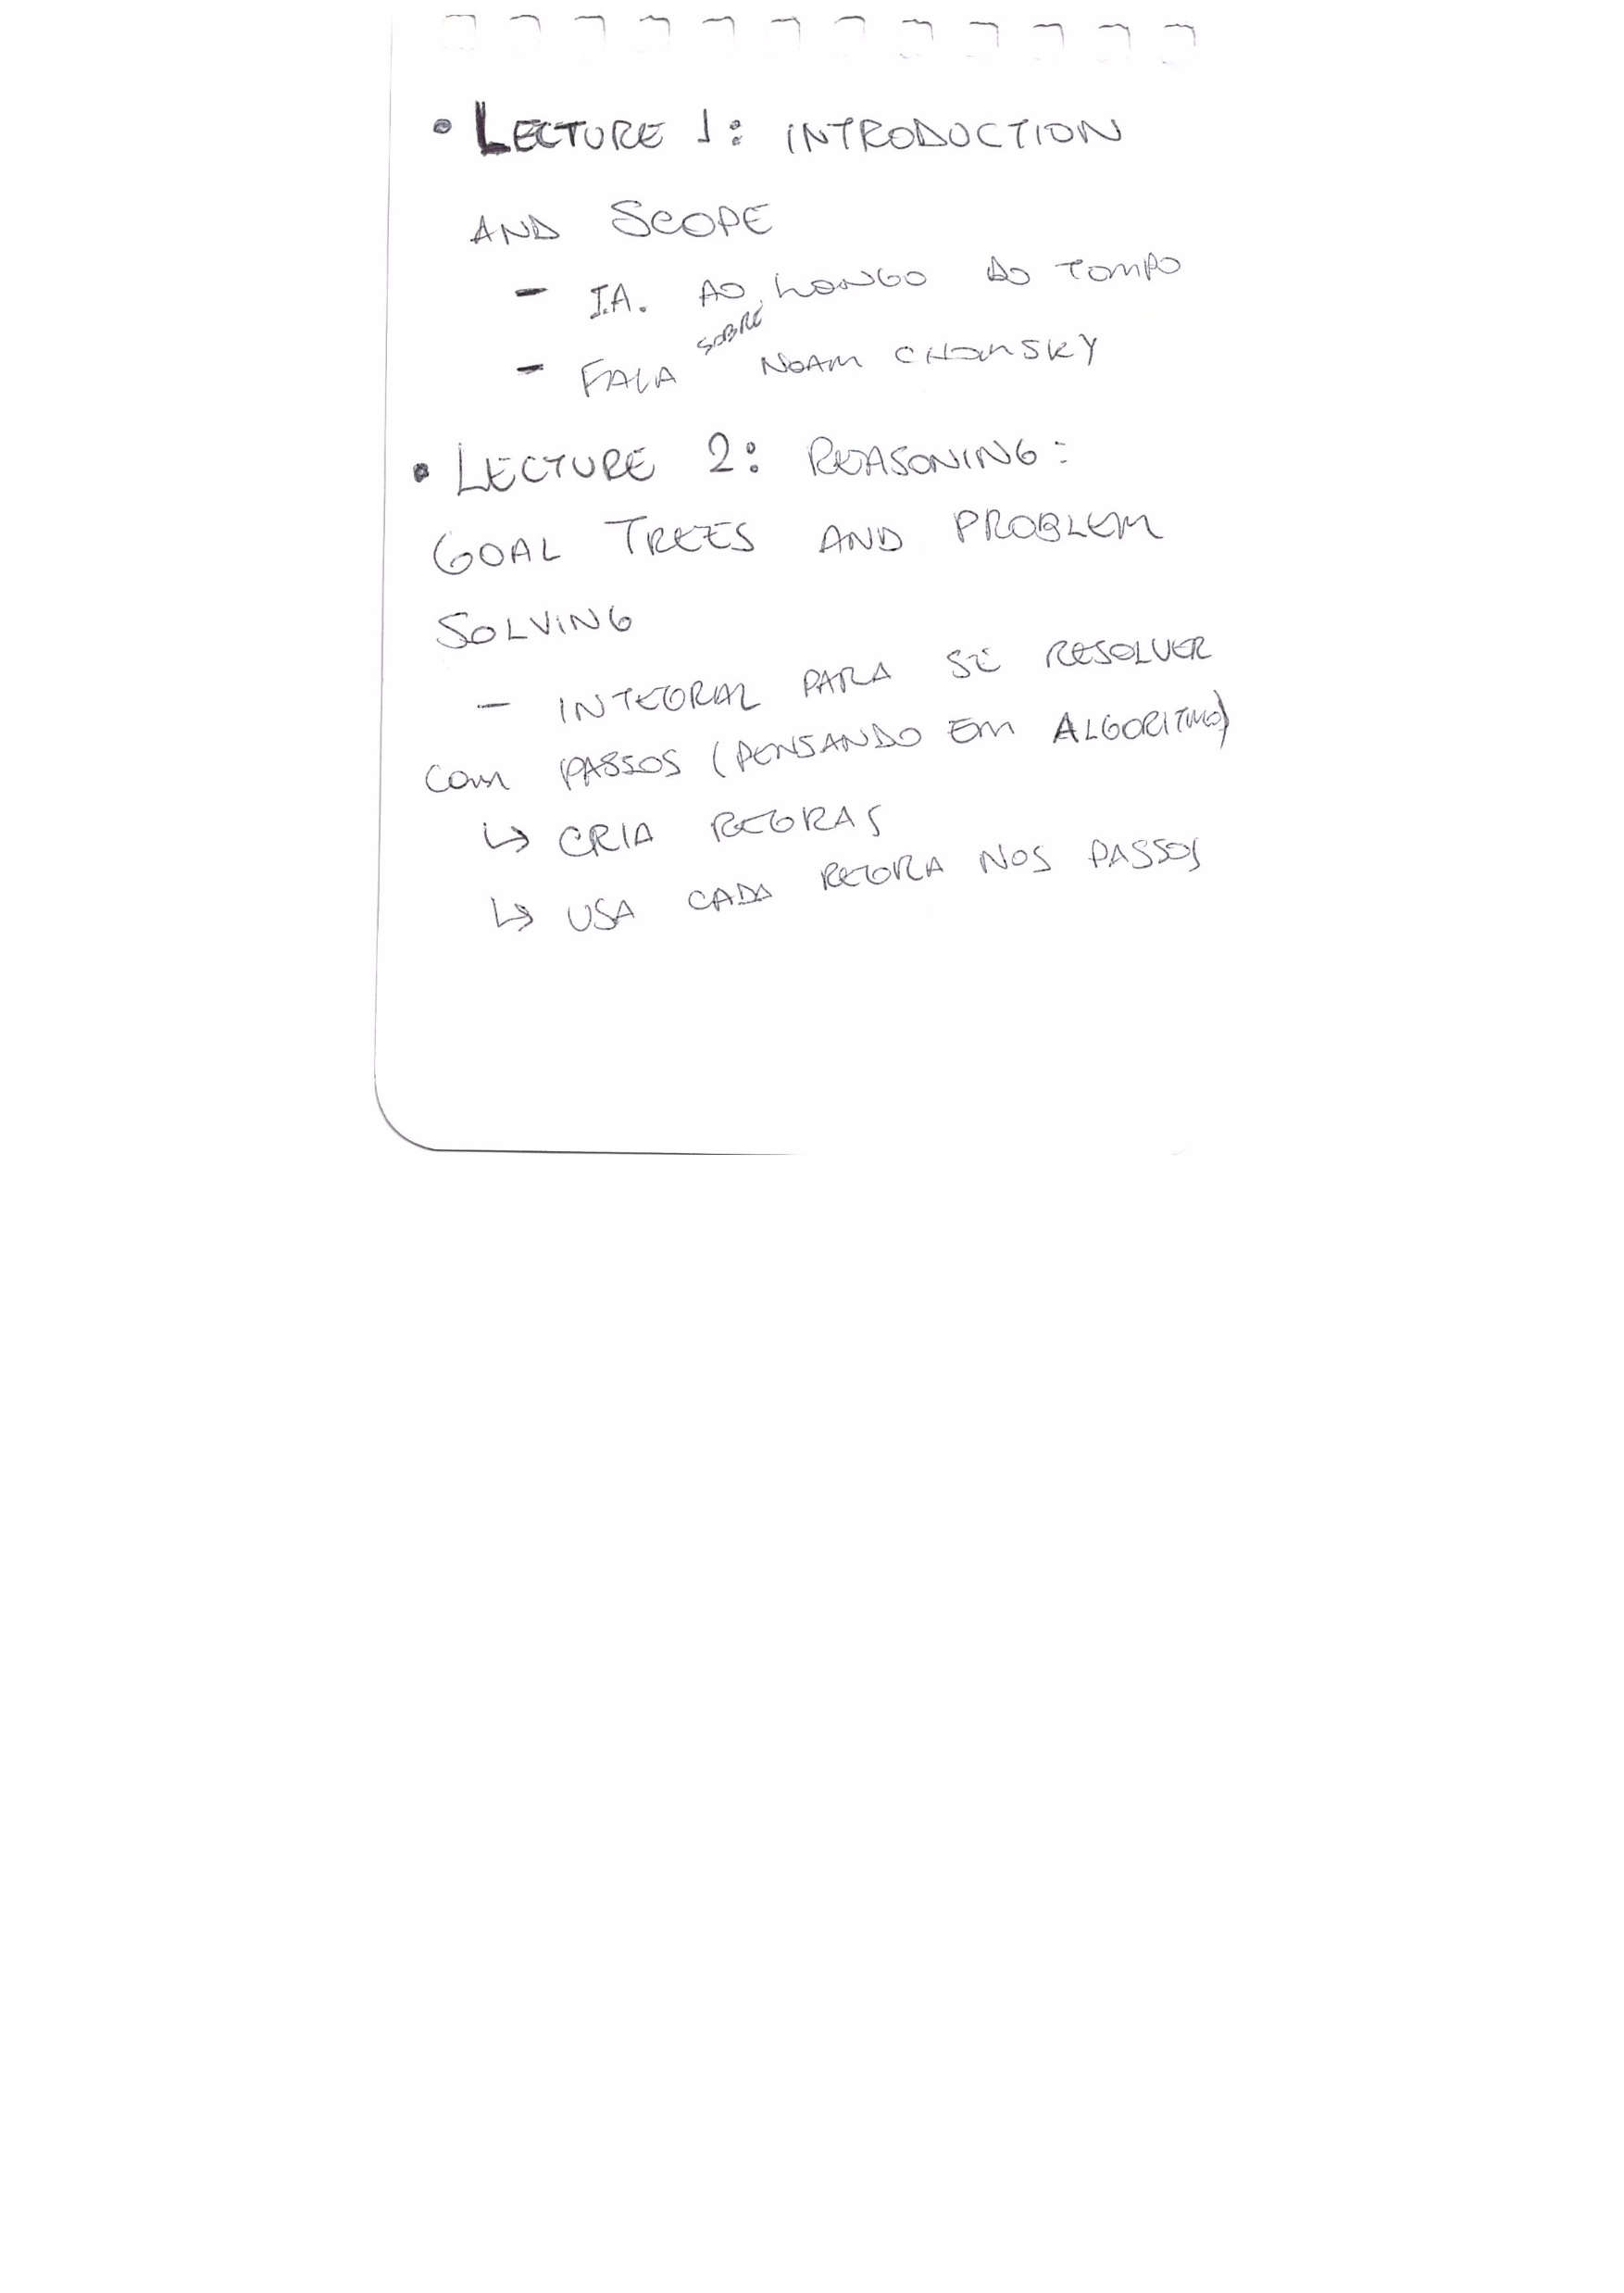 • LECTURE 1: INTRODUCTION
AND SCOPE
- I.A. AO LONGO DO TEMPO
- FALA SOBRE NOAM CHOMSKY
• LECTURE 2: REASONING:
GOAL TREES AND PROBLEM
SOLVING
- INTEGRAL PARA SE RESOLVER
COM PASSOS (PENSANDO EM ALGORITMO)
↳ CRIA REGRAS
↳ USA CADA REGRA NOS PASSOS